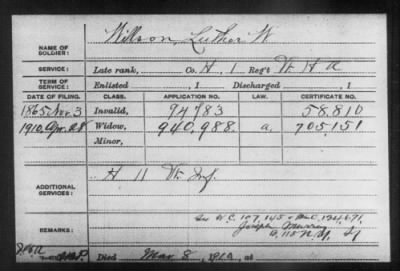 NAME OF SOLDIER: Willson, Luther W.
SERVICE: Late rank, Co. H, 1 Reg't Vt. H A
TERM OF SERVICE: Enlisted , 1 Discharged , 1
DATE OF FILING. CLASS. APPLICATION NO. LAW. CERTIFICATE NO.
1865 Nov. 3 Invalid, 94783 58.810
1910 Apr. 28 Widow, 940,988. a, 705,151
Minor,
ADDITIONAL SERVICES: H 11 Vt. Inf.
REMARKS: W.C. 107,145
Joseph Murray
Died Mar. 8, 1910, at